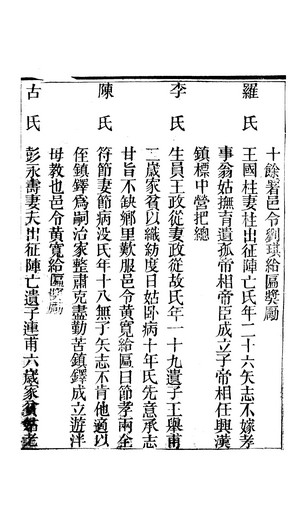 十餘署邑令劉琪給匾獎勵
羅氏
王國柱妻柱出征陣亡氏年二十六矢志不嫁孝
事翁姑撫有遺孤帝相帝臣成立子帝相任興漢
鎮標中營把總
李氏
生員王政從妻政從故氏年一十九遺子王舉甫
二歲家貧以織紡度日姑卧病十年氏先意承志
甘旨不缺鄉里歎服邑令黃寛給匾曰節孝兩全
陳氏
符節妻節病没氏年十八無子矢志不肯他適以
侄鎮鐸為嗣治家整肅克盡勤苦鎮鐸成立遊泮
母教也邑令黃寛給匾獎勵
古氏
彭永壽妻夫出征陣亡遺子連甫六歲家貧姑老